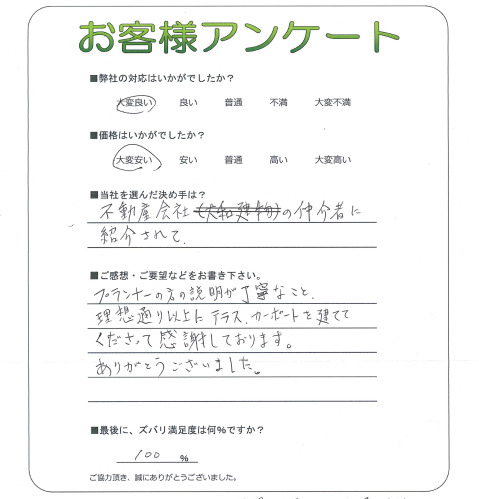 お客様アンケート
■弊社の対応はいかがでしたか?
大変良い 良い 普通 不満 大変不満
■価格はいかがでしたか?
大変安い 安い 普通 高い 大変高い
■当社を選んだ決め手は?
不動産会社(大和建物)の仲介者に
紹介されて.
■ご感想・ご要望などをお書き下さい。
プランナーの方の説明が丁寧なこと.
理想通り以上に テラス.カーポートを建てて
くださって感謝しております。
ありがとうございました。
■最後に、ズバリ満足度は何%ですか?
100 %
ご協力頂き、誠にありがとうございました。